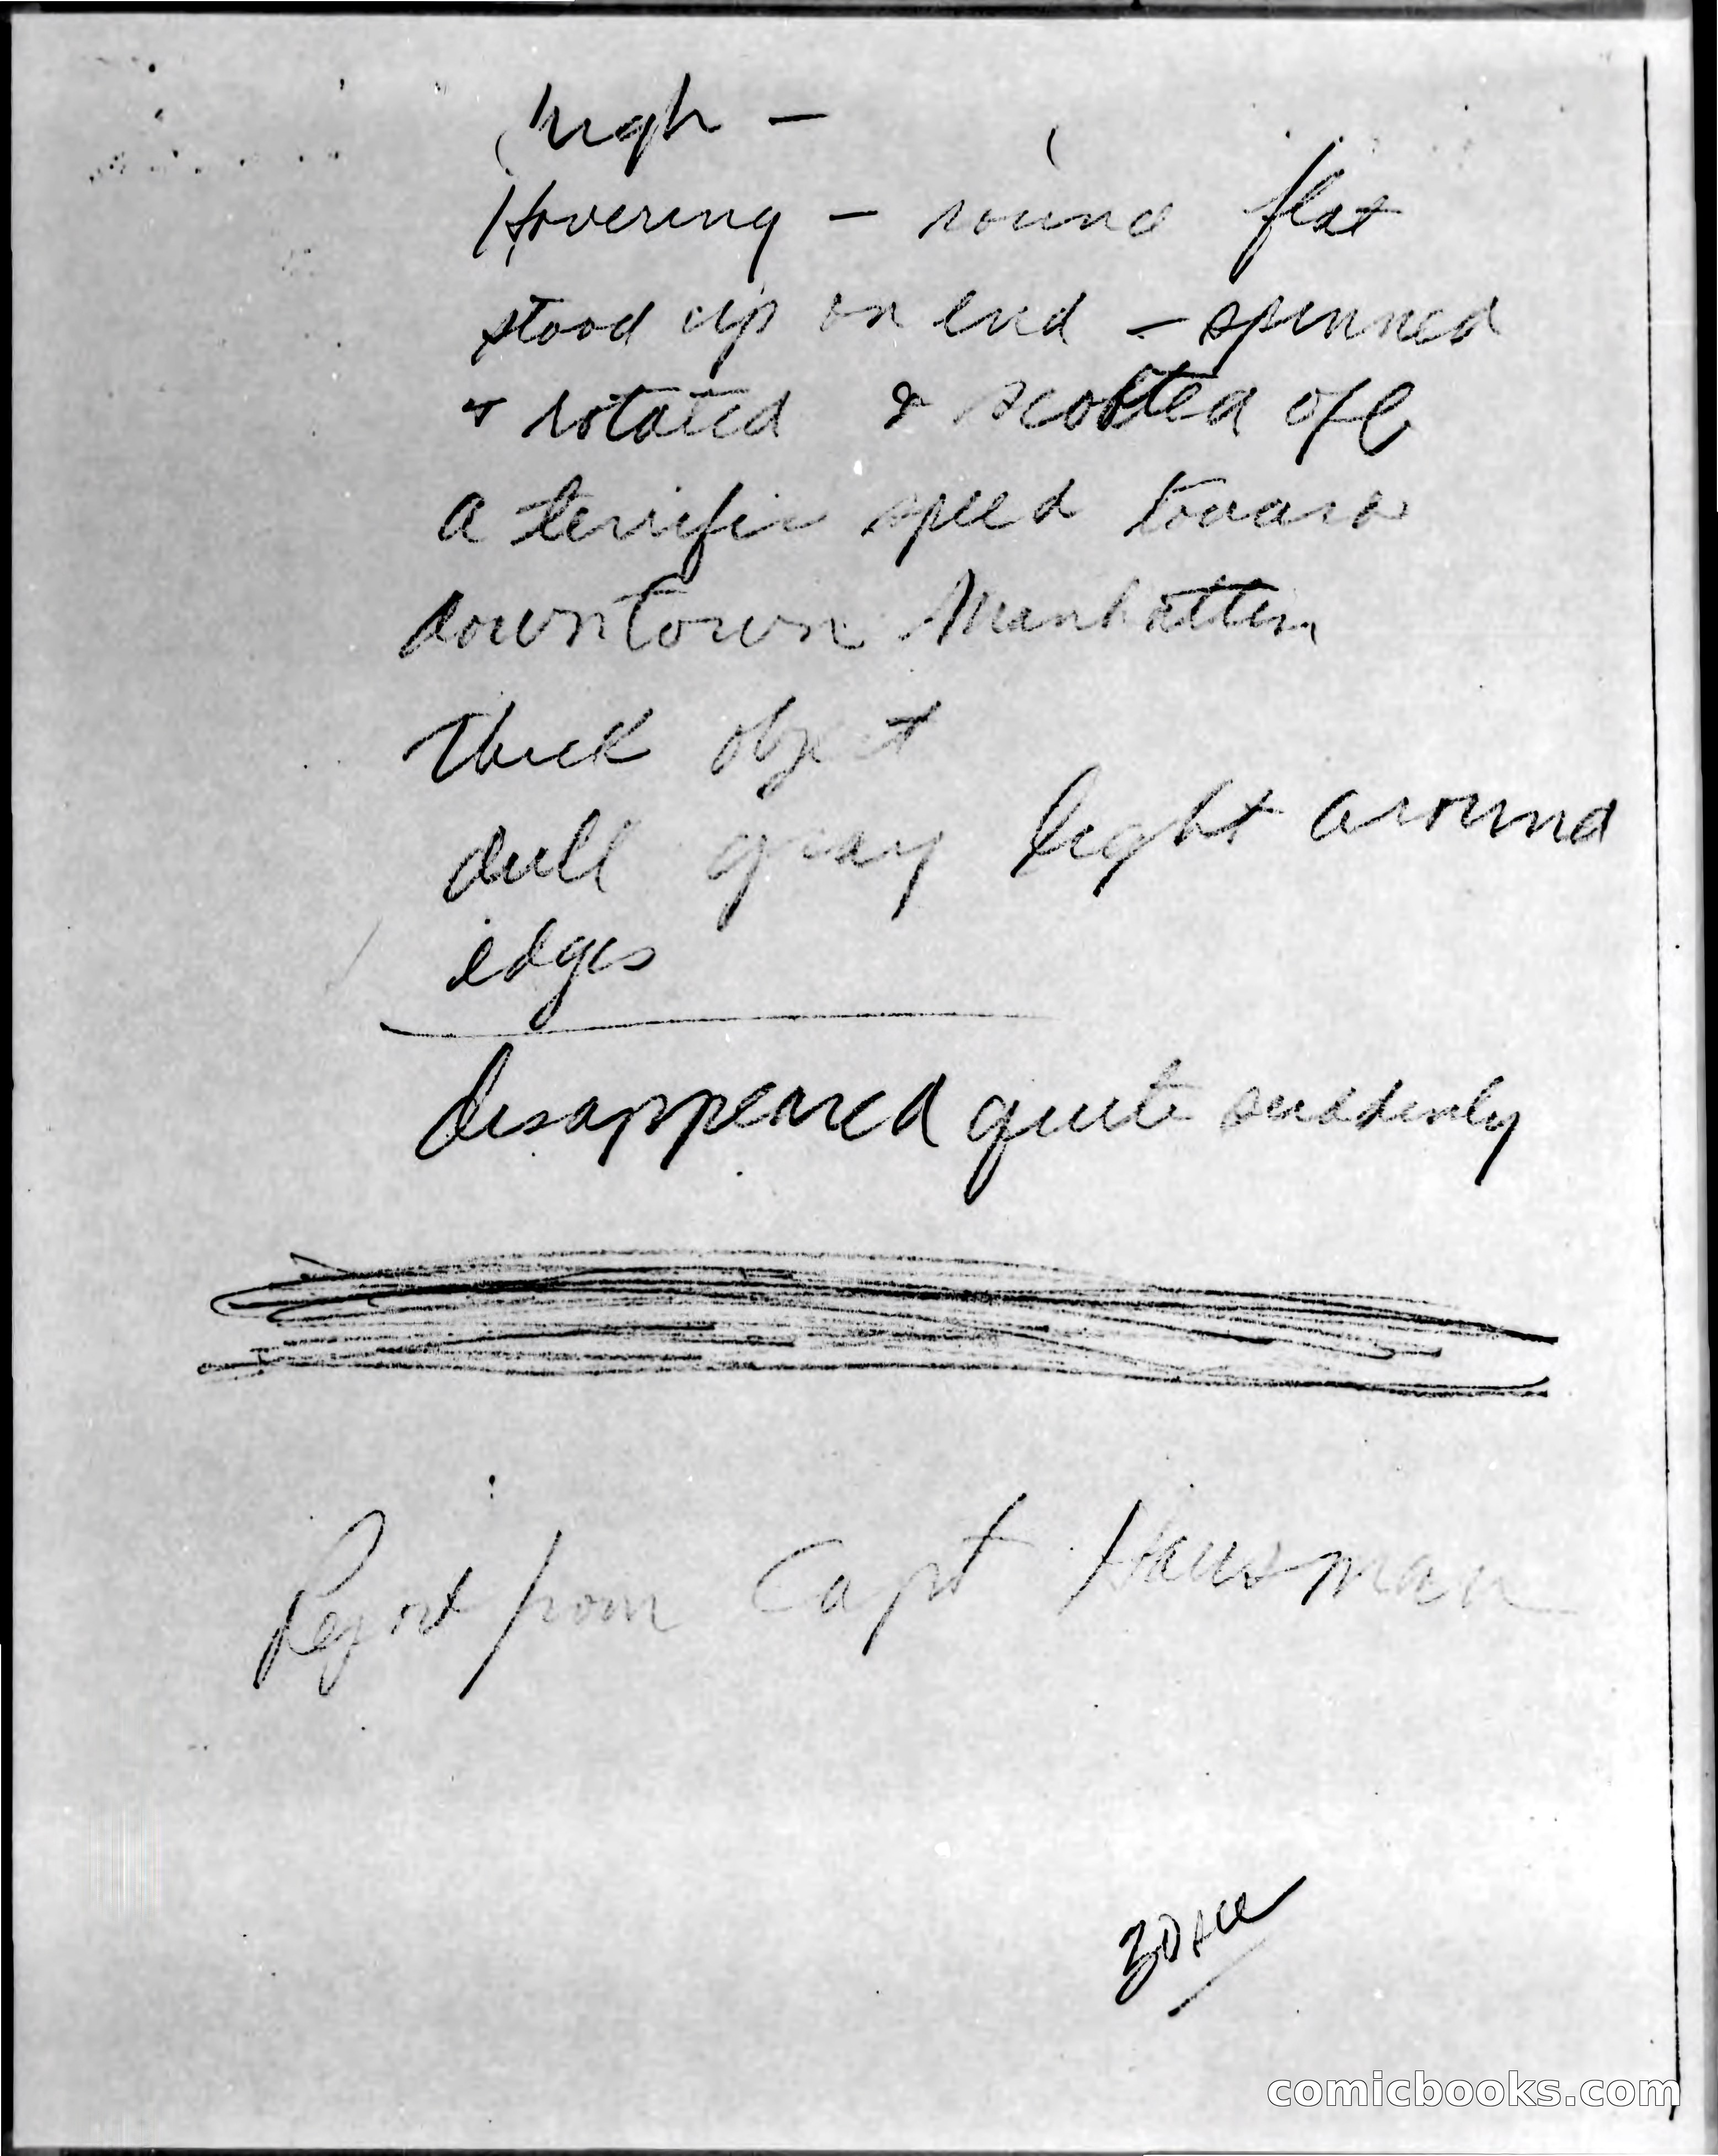 high -
Hovering - round flat
stood up on end - spinned
+ rotated & scooted off
a terrific speed toward
downtown Manhatten
thick object
dull gray light around
edges
disappeared quite suddenly
Report from Capt Hausman
comicbooks.com